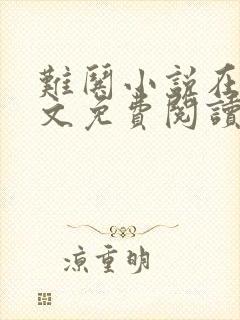 難關小説在
文免費閱讀
凉重明